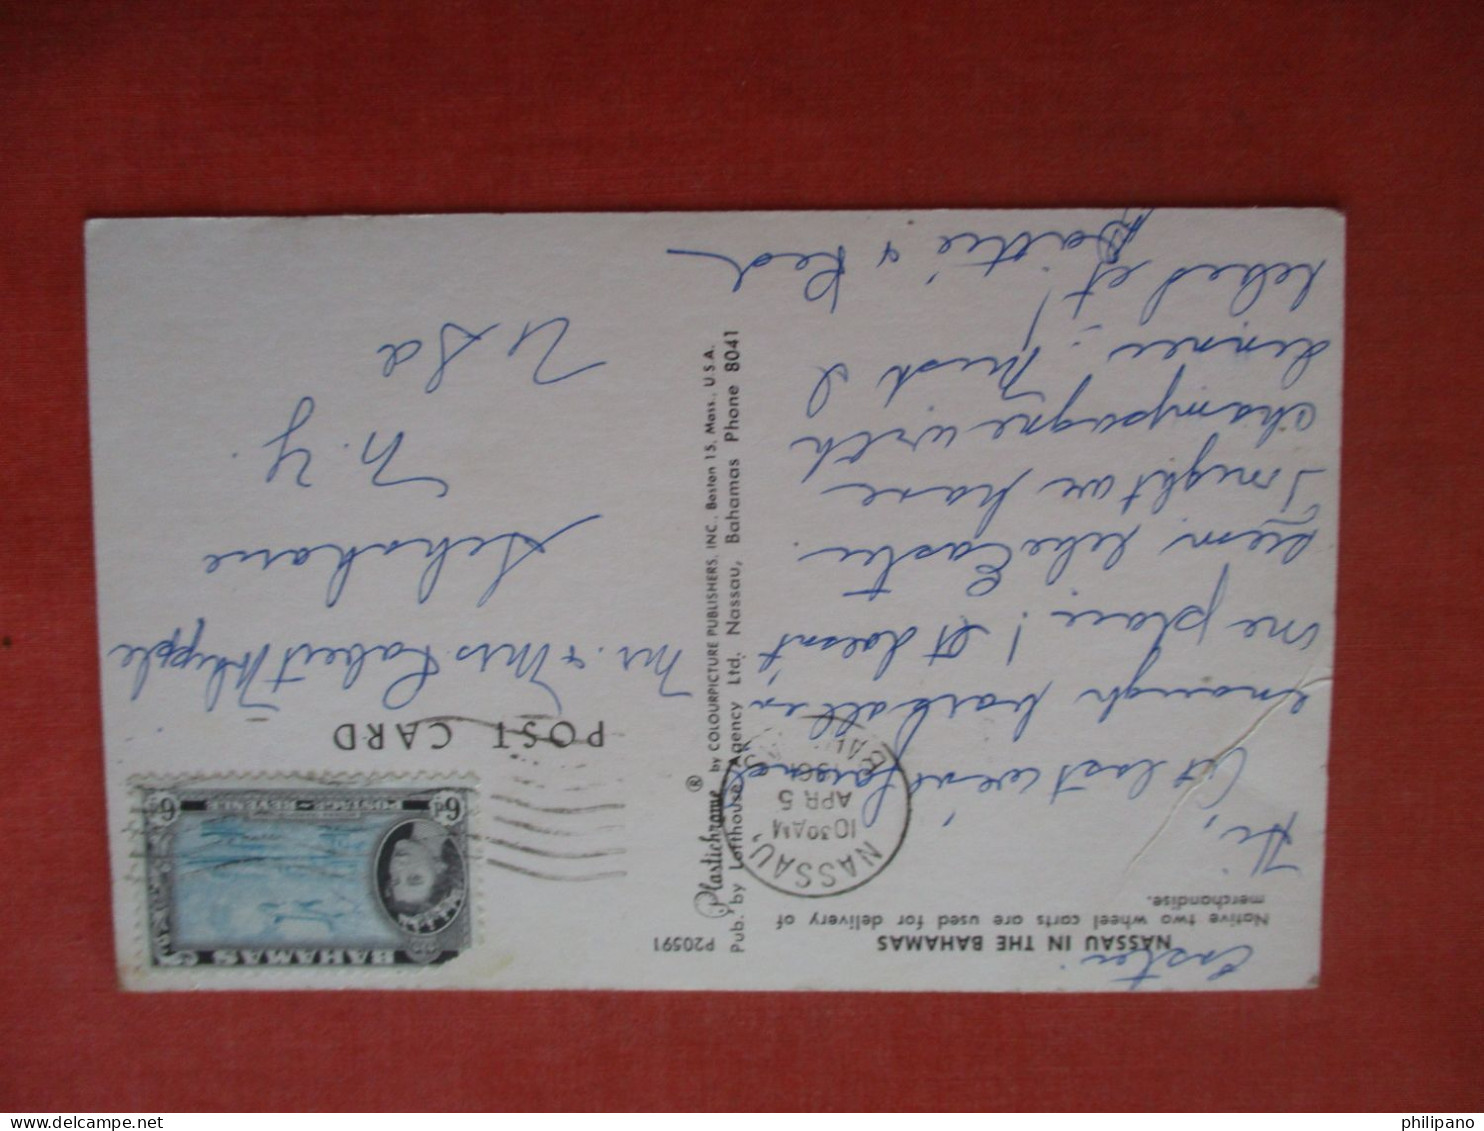 Easter
NASSAU IN THE BAHAMAS
Native two wheel carts are used for delivery of
merchandise.
Hi,
At last we've found
enough paradise in
one place! It doesn't
seem like Easter.
Tonight we have
champagne with
dinner - Just I
liked it!
Dottie & Red
P20591
Plastichrome ® by COLOURPICTURE PUBLISHERS, INC., Boston 15, Mass., U.S.A.
Pub. by Lofthouse Agency Ltd., Nassau, Bahamas Phone 8041
NASSAU,
10 30 AM
APR 5
196
BAHAMAS
6d
6d
POSTAGE & REVENUE
POST CARD
Mr. & Mrs Robert Whipple
Schoharie
N.Y.
USA
philipano
delcampe.net